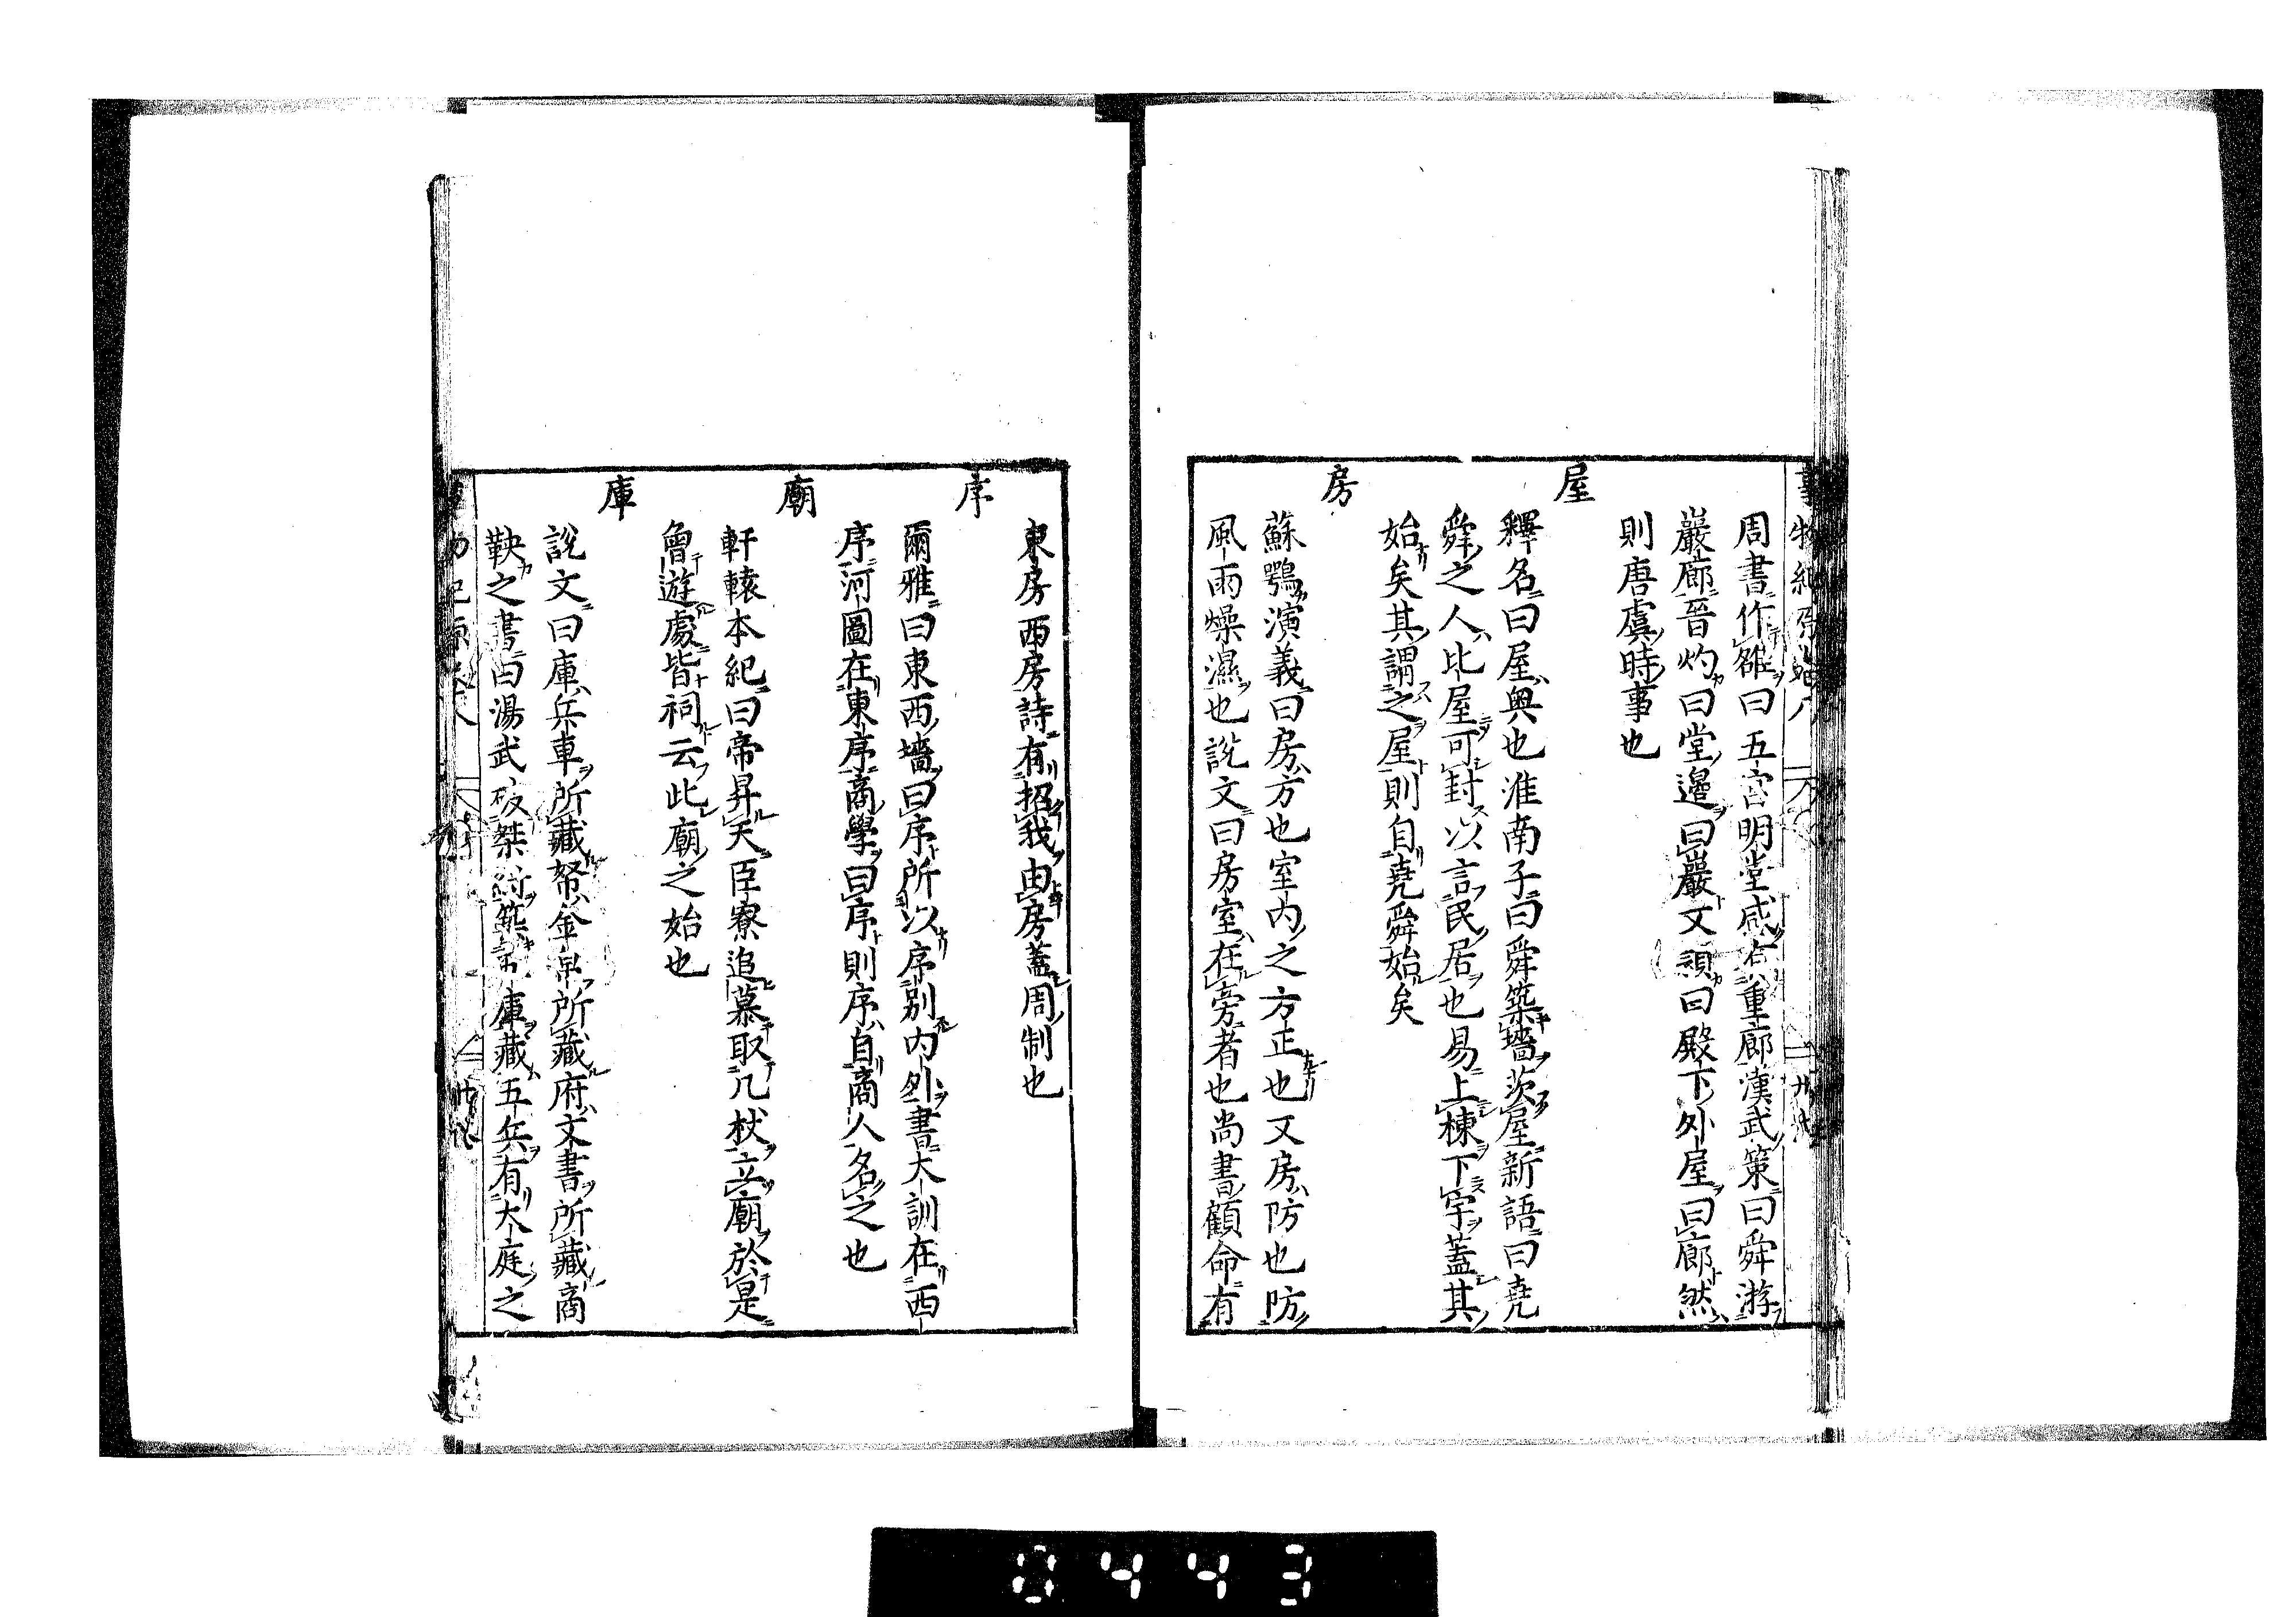 周書作雒曰五宮明堂咸有重廊漢武策曰舜游
巖廊晉灼曰堂邉曰巖文頴曰殿下外屋曰廊然
則唐虞時事也
屋
釋名曰屋奥也淮南子曰舜築墻茨屋新語曰堯
舜之人比屋可封以言民居也易上棟下宇蓋其
始矣其謂之屋則自堯舜始矣
房
蘇鶚演義曰房方也室内之方正也又房防也防
風雨燥濕也說文曰房室在旁者也尚書顧命有
東房西房詩有招我由房蓋周制也
序
爾雅曰東西墻曰序所以序別内外書大訓在西
序河圖在東序商學曰序則序自商人名之也
廟
軒轅本紀曰帝昇天臣寮追慕取几杖立廟於是
曾遊處皆祠云此廟之始也
庫
說文曰庫兵車所藏帑金帛所藏府文書所藏商
鞅之書曰湯武破桀紂築庫藏五兵有大庭之
0443